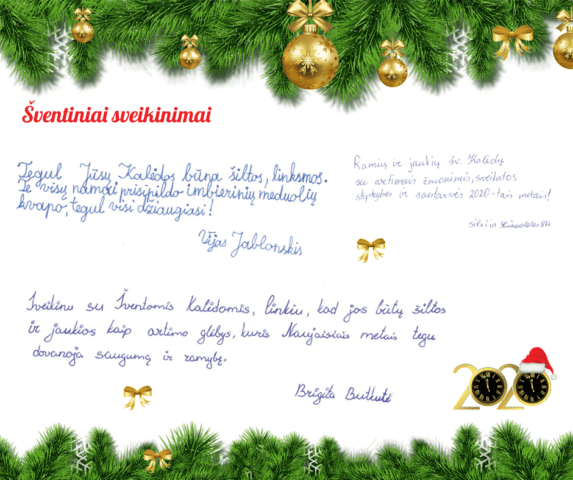 Šventiniai sveikinimai
Tegul Jūsų Kalėdos būna šiltos, linksmos.
Te visų namai prisipildo imbierinių meduolių
kvapo, tegul visi džiaugiasi!
Vijas Jablonskis
Ramių ir jaukių šv. Kalėdų
su artimais žmonėmis, sveikatos
stiprybės ir santarvės 2020-tais metais!
Silvija
Sveikinu su Šventomis Kalėdomis, linkiu, kad jos būtų šiltos
ir jaukios kaip artimo glėbys, kuris Naujaisiais metais tegu
dovanoja saugumą ir ramybę.
Brigita Butkutė
2020